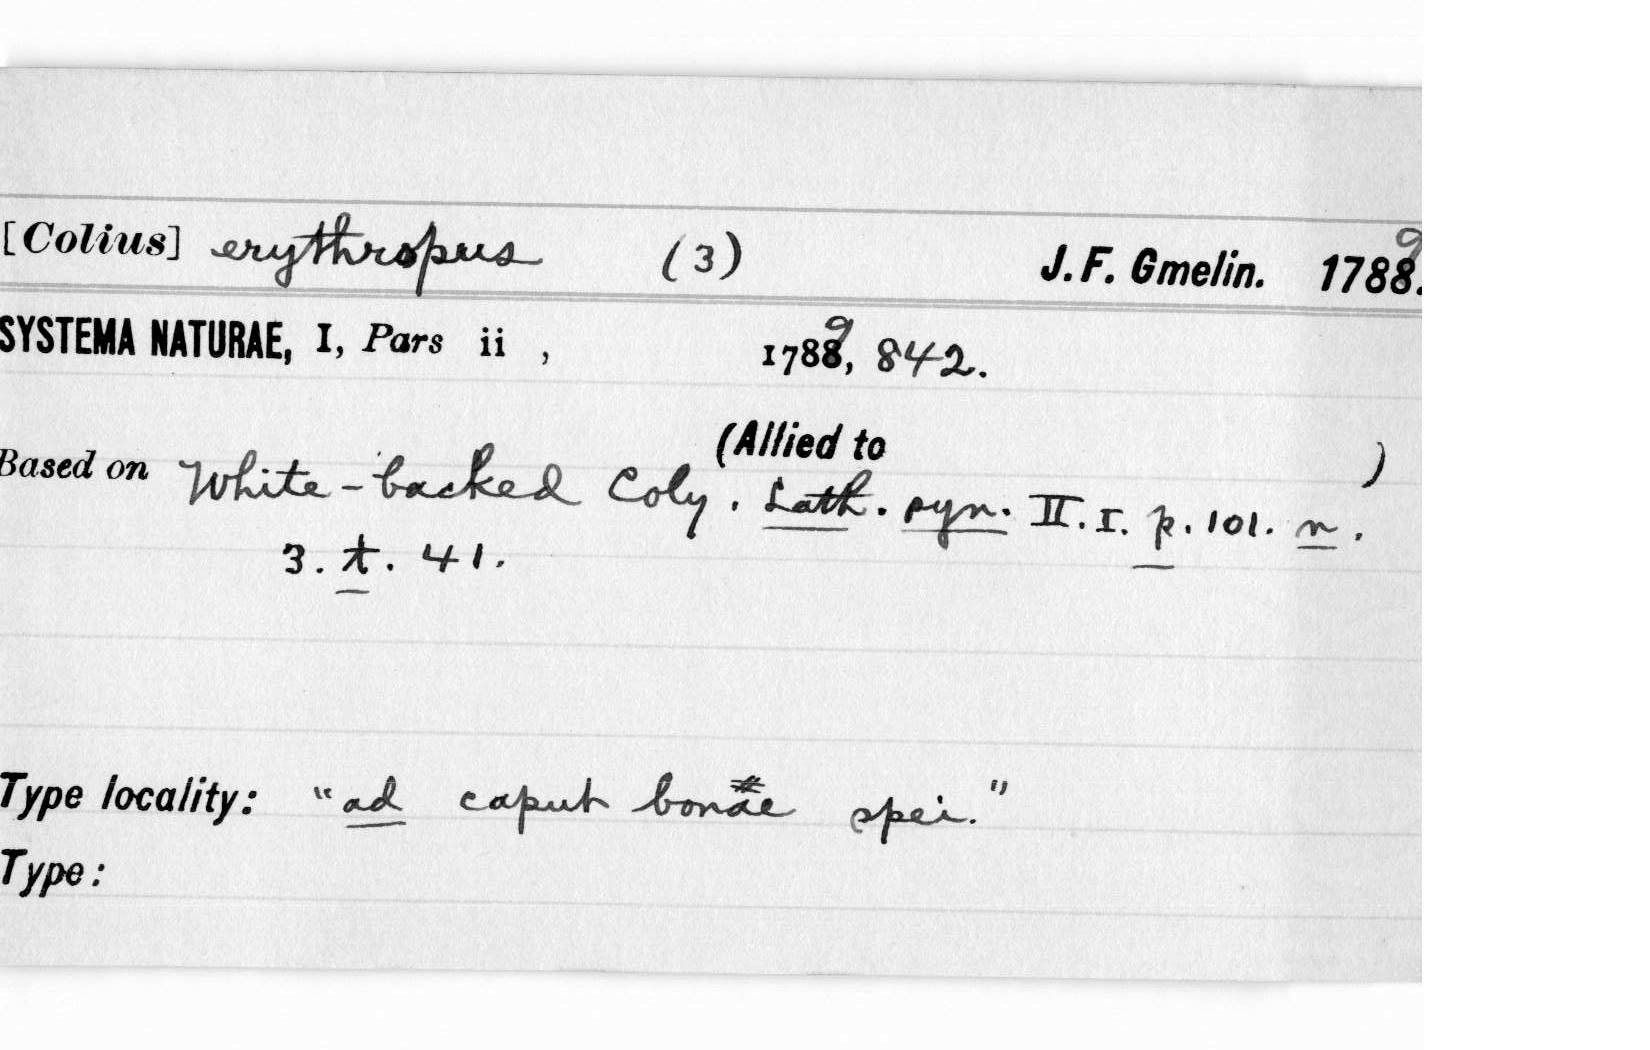 [Colius] erythropus (3) J. F. Gmelin. 1789.
SYSTEMA NATURAE, I, Pars ii , 1789, 842.
(Allied to )
Based on White-backed Coly. Lath. syn. II. I. p. 101. n.
3. t. 41.
Type locality: "ad caput bonae spei."
Type: